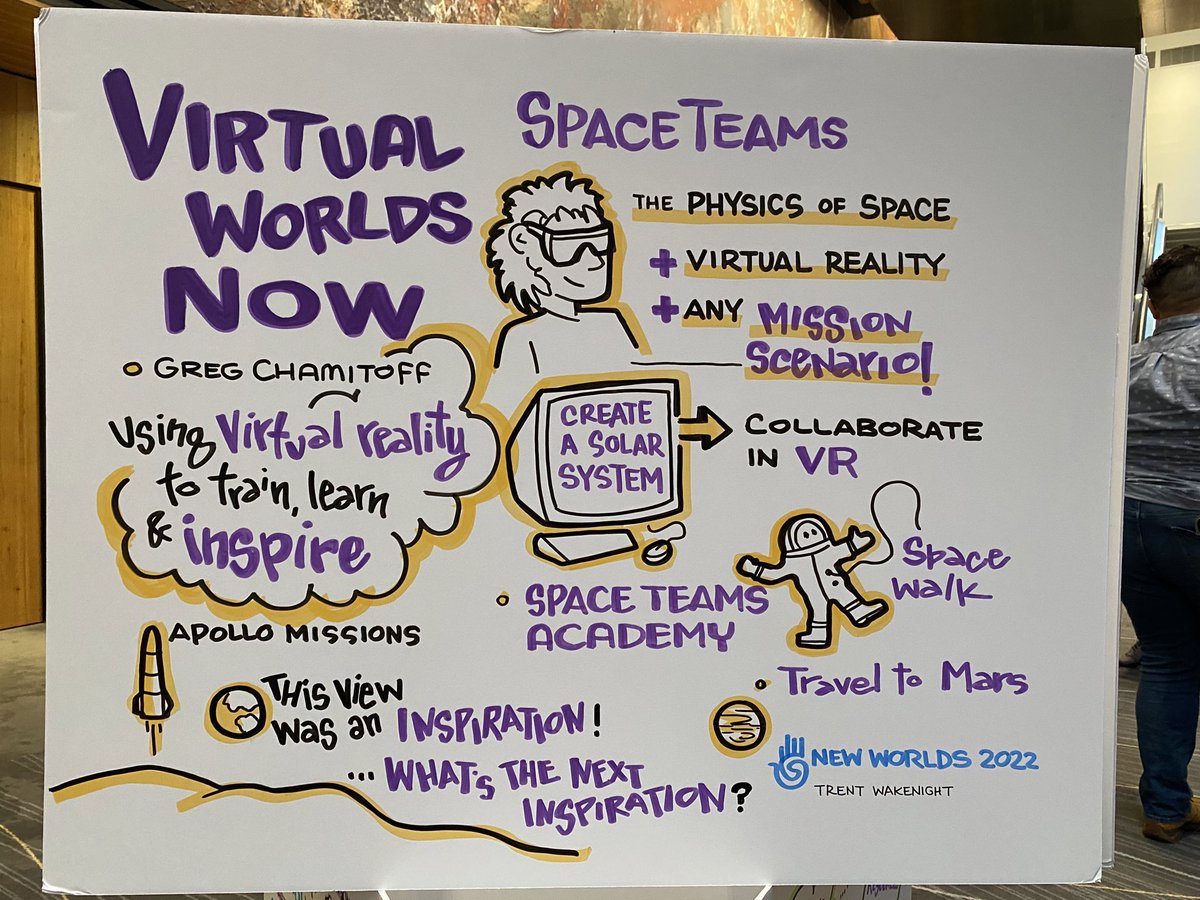 VIRTUAL
WORLDS
NOW
GREG CHAMITOFF
using virtual reality
to train, learn
& inspire
APOLLO MISSIONS
THIS VIEW
was an INSPIRATION!
... WHAT'S THE NEXT
INSPIRATION?
SPACE TEAMS
THE PHYSICS OF SPACE
+ VIRTUAL REALITY
+ ANY MISSION
SCENARIO!
CREATE
A SOLAR
SYSTEM
COLLABORATE
IN VR
SPACE TEAMS
ACADEMY
Space
walk
Travel to Mars
NEW WORLDS 2022
TRENT WAKENIGHT